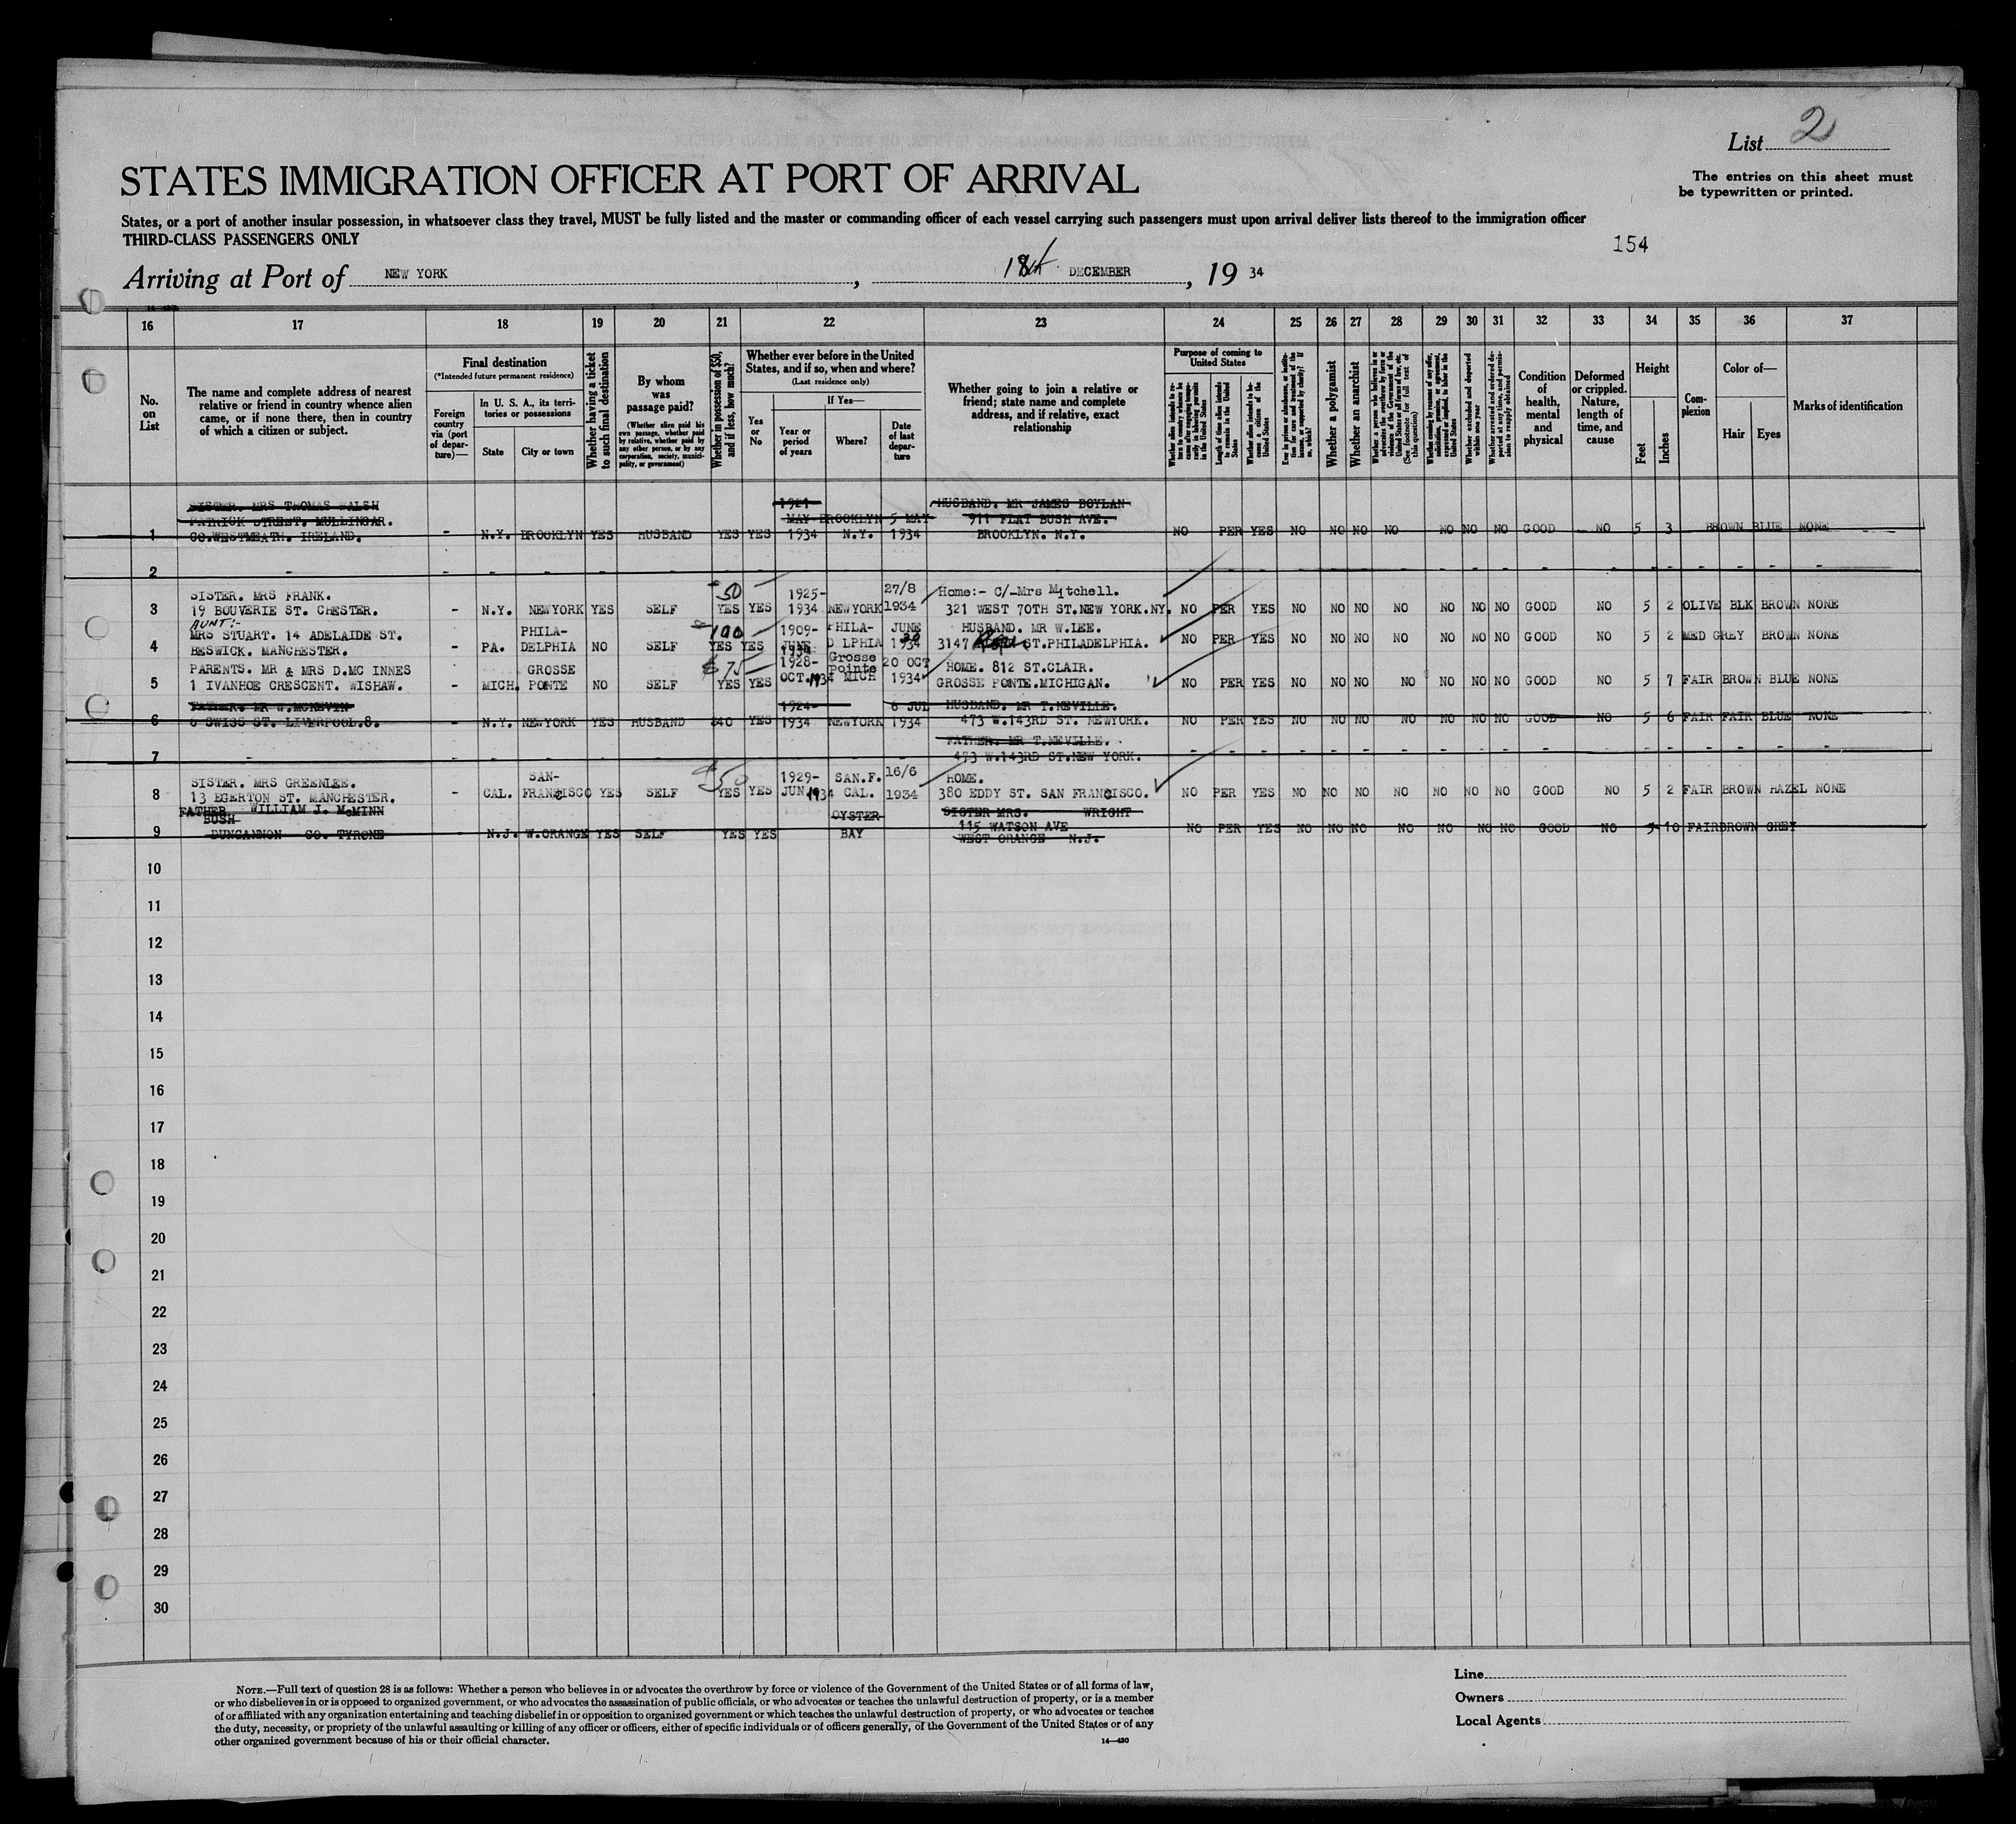 List 2
STATES IMMIGRATION OFFICER AT PORT OF ARRIVAL
The entries on this sheet must
be typewritten or printed.
States, or a port of another insular possession, in whatsoever class they travel, MUST be fully listed and the master or commanding officer of each vessel carrying such passengers must upon arrival deliver lists thereof to the immigration officer
THIRD-CLASS PASSENGERS ONLY
154
Arriving at Port of NEW YORK, 18th DECEMBER, 19 34
16 17 18 19 20 21 22 23 24 25 26 27 28 29 30 31 32 33 34 35 36 37
No. on List
The name and complete address of nearest
relative or friend in country whence alien
came, or if none there, then in country
of which a citizen or subject.
Final destination
(*Intended future permanent residence)
Foreign country via (port of departure)—
In U. S. A., its territories or possessions
State
City or town
Whether having a ticket to such final destination
By whom was passage paid?
(Whether alien paid his own passage, whether paid by relative, whether paid by any other person, or by any corporation, society, municipality, or government)
Whether in possession of $50, and if less, how much?
Whether ever before in the United
States, and if so, when and where?
(Last residence only)
Yes or No
If Yes—
Year or period of years
Where?
Date of last departure
Whether going to join a relative or
friend; state name and complete
address, and if relative, exact
relationship
Purpose of coming to United States
Length of time alien intends to remain in the United States
Whether alien intends to become a citizen of the United States
Whether a polygamist
Whether an anarchist
Whether excluded and deported within one year
Condition of health, mental and physical
Deformed or crippled. Nature, length of time, and cause
Height
Feet
Inches
Complexion
Color of—
Hair
Eyes
Marks of identification
SISTER. MRS THOMAS WALSH 1921- HUSBAND. MR JAMES BOYLAN
PATRICK STREET. MULLINGAR. MAY BROOKLYN 5 MAY 911 FLAT BUSH AVE.
1 CO.WESTMEATH. IRELAND. - N.Y. BROOKLYN YES HUSBAND YES YES 1934 N.Y. 1934 BROOKLYN. N.Y. NO PER YES NO NO NO NO NO NO NO GOOD NO 5 3 BROWN BLUE NONE
2 - - - - - - - - - - - - - -
SISTER. MRS FRANK. 50 1925- 27/8 Home:- C/-Mrs Mitchell.
3 19 BOUVERIE ST. CHESTER. - N.Y. NEWYORK YES SELF YES YES 1934 NEWYORK 1934 321 WEST 70TH ST.NEW YORK.NY. NO PER YES NO NO NO NO NO NO NO GOOD NO 5 2 OLIVE BLK BROWN NONE
AUNT:-
MRS STUART. 14 ADELAIDE ST. PHILA- 100 1909- PHILA- JUNE HUSBAND. MR W.LEE.
4 BESWICK. MANCHESTER. - PA. DELPHIA NO SELF YES YES JUNE 1934 D LPHIA 30 1934 3147 ST.PHILADELPHIA. NO PER YES NO NO NO NO NO NO NO GOOD NO 5 2 MED GREY BROWN NONE
PARENTS. MR & MRS D.MC INNES GROSSE $75 1928- Grosse Pointe 20 OCT HOME. 812 ST.CLAIR.
5 1 IVANHOE CRESCENT. WISHAW. - MICH. POINTE NO SELF YES YES OCT.1934 MICH 1934 GROSSE POINTE.MICHIGAN. NO PER YES NO NO NO NO NO NO NO GOOD NO 5 7 FAIR BROWN BLUE NONE
FATHER. MR W.MCNEVIN 1924- 6 JUL HUSBAND. MR T.NEVILLE.
6 6 SWISS ST. LIVERPOOL.8. - N.Y. NEWYORK YES HUSBAND $40 YES 1934 NEWYORK 1934 473 W.143RD ST. NEWYORK. NO PER YES NO NO NO NO NO NO NO GOOD NO 5 6 FAIR FAIR BLUE NONE
FATHER. MR T.NEVILLE.
7 - - - - - - - - - - 473 W.143RD ST.NEW YORK. - - - - - - - -
SISTER. MRS GREENLEE. SAN- $50 1929- SAN.F. 16/6 HOME.
8 13 EGERTON ST. MANCHESTER. - CAL. FRANCISCO YES SELF YES YES JUN.1934 CAL. 1934 380 EDDY ST. SAN FRANCISCO. NO PER YES NO NO NO NO NO NO NO GOOD NO 5 2 FAIR BROWN HAZEL NONE
FATHER WILLIAM J. McMINN OYSTER SISTER MRS. WRIGHT
BUSH 115 WATSON AVE
9 DUNGANNON CO. TYRONE N.J. W.ORANGE YES SELF YES YES BAY WEST ORANGE N.J. NO PER YES NO NO NO NO NO NO NO GOOD NO 5 10 FAIR BROWN GREY
10
11
12
13
14
15
16
17
18
19
20
21
22
23
24
25
26
27
28
29
30
NOTE.—Full text of question 28 is as follows: Whether a person who believes in or advocates the overthrow by force or violence of the Government of the United States or of all forms of law,
or who disbelieves in or is opposed to organized government, or who advocates the assassination of public officials, or who advocates or teaches the unlawful destruction of property, or is a member
of or affiliated with any organization entertaining and teaching disbelief in or opposition to organized government or which teaches the unlawful destruction of property, or who advocates or teaches
the duty, necessity, or propriety of the unlawful assaulting or killing of any officer or officers, either of specific individuals or of officers generally, of the Government of the United States or of any
other organized government because of his or their official character.
14—430
Line
Owners
Local Agents